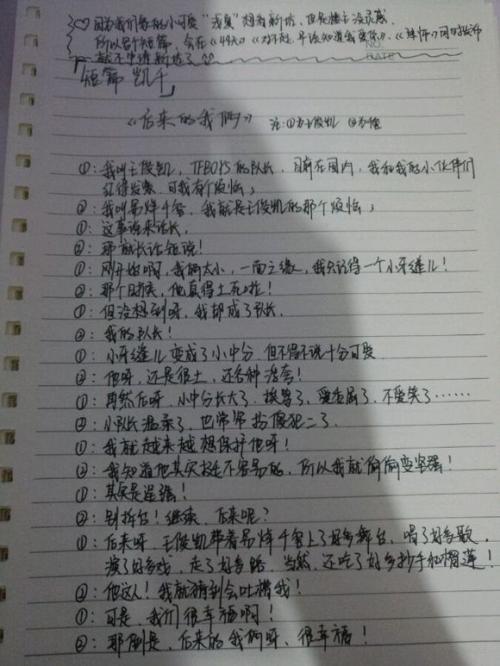 因为我们家的小可爱"
所以写个短篇,会在《49天》《对不起,早该知道我爱你》、《
就不申请新坊了
短篇 凯千
《后来的我们》 注:①为王俊凯 ②为千玺
①:我叫王俊凯,TFBOYS的队长,目前在国内,我和我的小伙伴们
红得发紫,可我有个烦恼,
②:我叫易烊千玺,我就是王俊凯的那个烦恼,
①:这事说来话长,
②:那就长话短说!
①:刚开始啊,我们太小,一面之缘,我只记得一个小牙缝儿!
②:那个时候,他真得土死啦!
①:但没想到呀,我却成了队长,
②:我的队长!
①:小牙缝儿变成了小中分,但不得不说十分可爱
②:他呀,还是很土,还各种活宝!
①:再然后呀,小中分长大了,换导了,受委屈了,不爱笑了……
②:小队长温柔了,也常常扮傻犯二了.
①:我就越来越想保护他呀!
②:我知道他其实挺不容易的,所以我就偷偷变坚强!
①:其实是逞强!
②:别拆台!继续,后来呢?
①:后来呀,王俊凯带着易烊千玺上了好多舞台,唱了好多歌,
演了好多戏,走了好多路,当然,还吃了好多抄手和榴莲!
②:他这人!我就猜到会吐槽我!
①:可是,我们很幸福啊!
②:那倒是,后来的我们呀,很幸福!